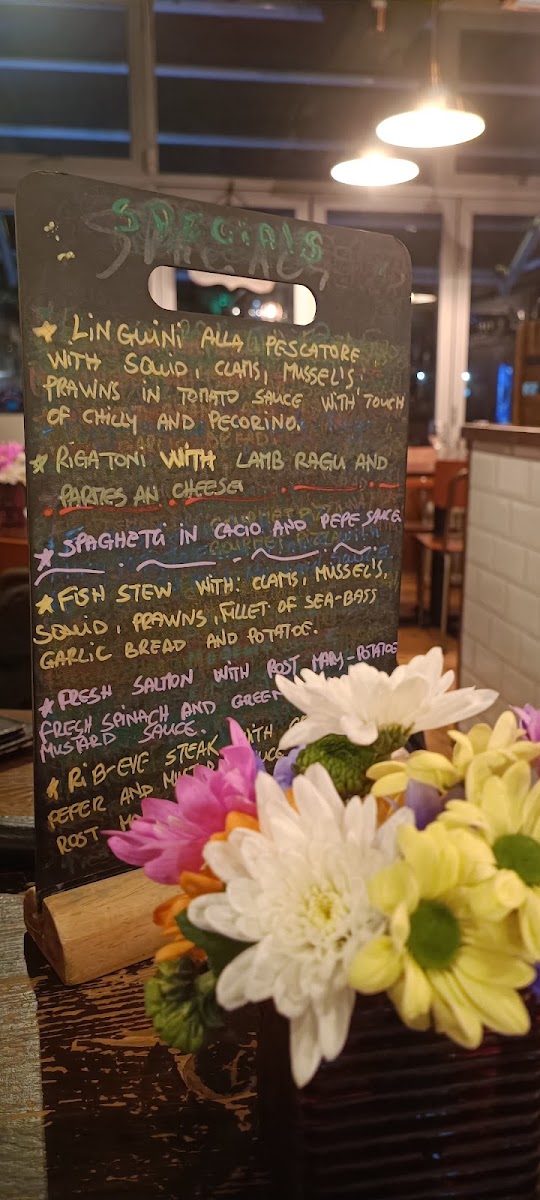 SPECIALS
★ LINGUINI ALLA PESCATORE
WITH SQUID, CLAMS, MUSSEL'S,
PRAWNS IN TOMATO SAUCE WITH TOUCH
OF CHILLY AND PECORINO.
★ RIGATONI WITH LAMB RAGU AND
PARTES AN CHEESE
★ SPAGHETTI IN CACIO AND PEPE SAUCE
★ FISH STEW WITH: CLAMS, MUSSEL'S,
SQUID, PRAWNS, FILLET OF SEA-BASS
GARLIC BREAD AND POTATOE.
★ FRESH SALMON WITH ROST MARY-POTATOE
FRESH SPINACH AND GREEN
MUSTARD SAUCE.
★ RIB-EYE STEAK WITH
PEPER AND
ROST